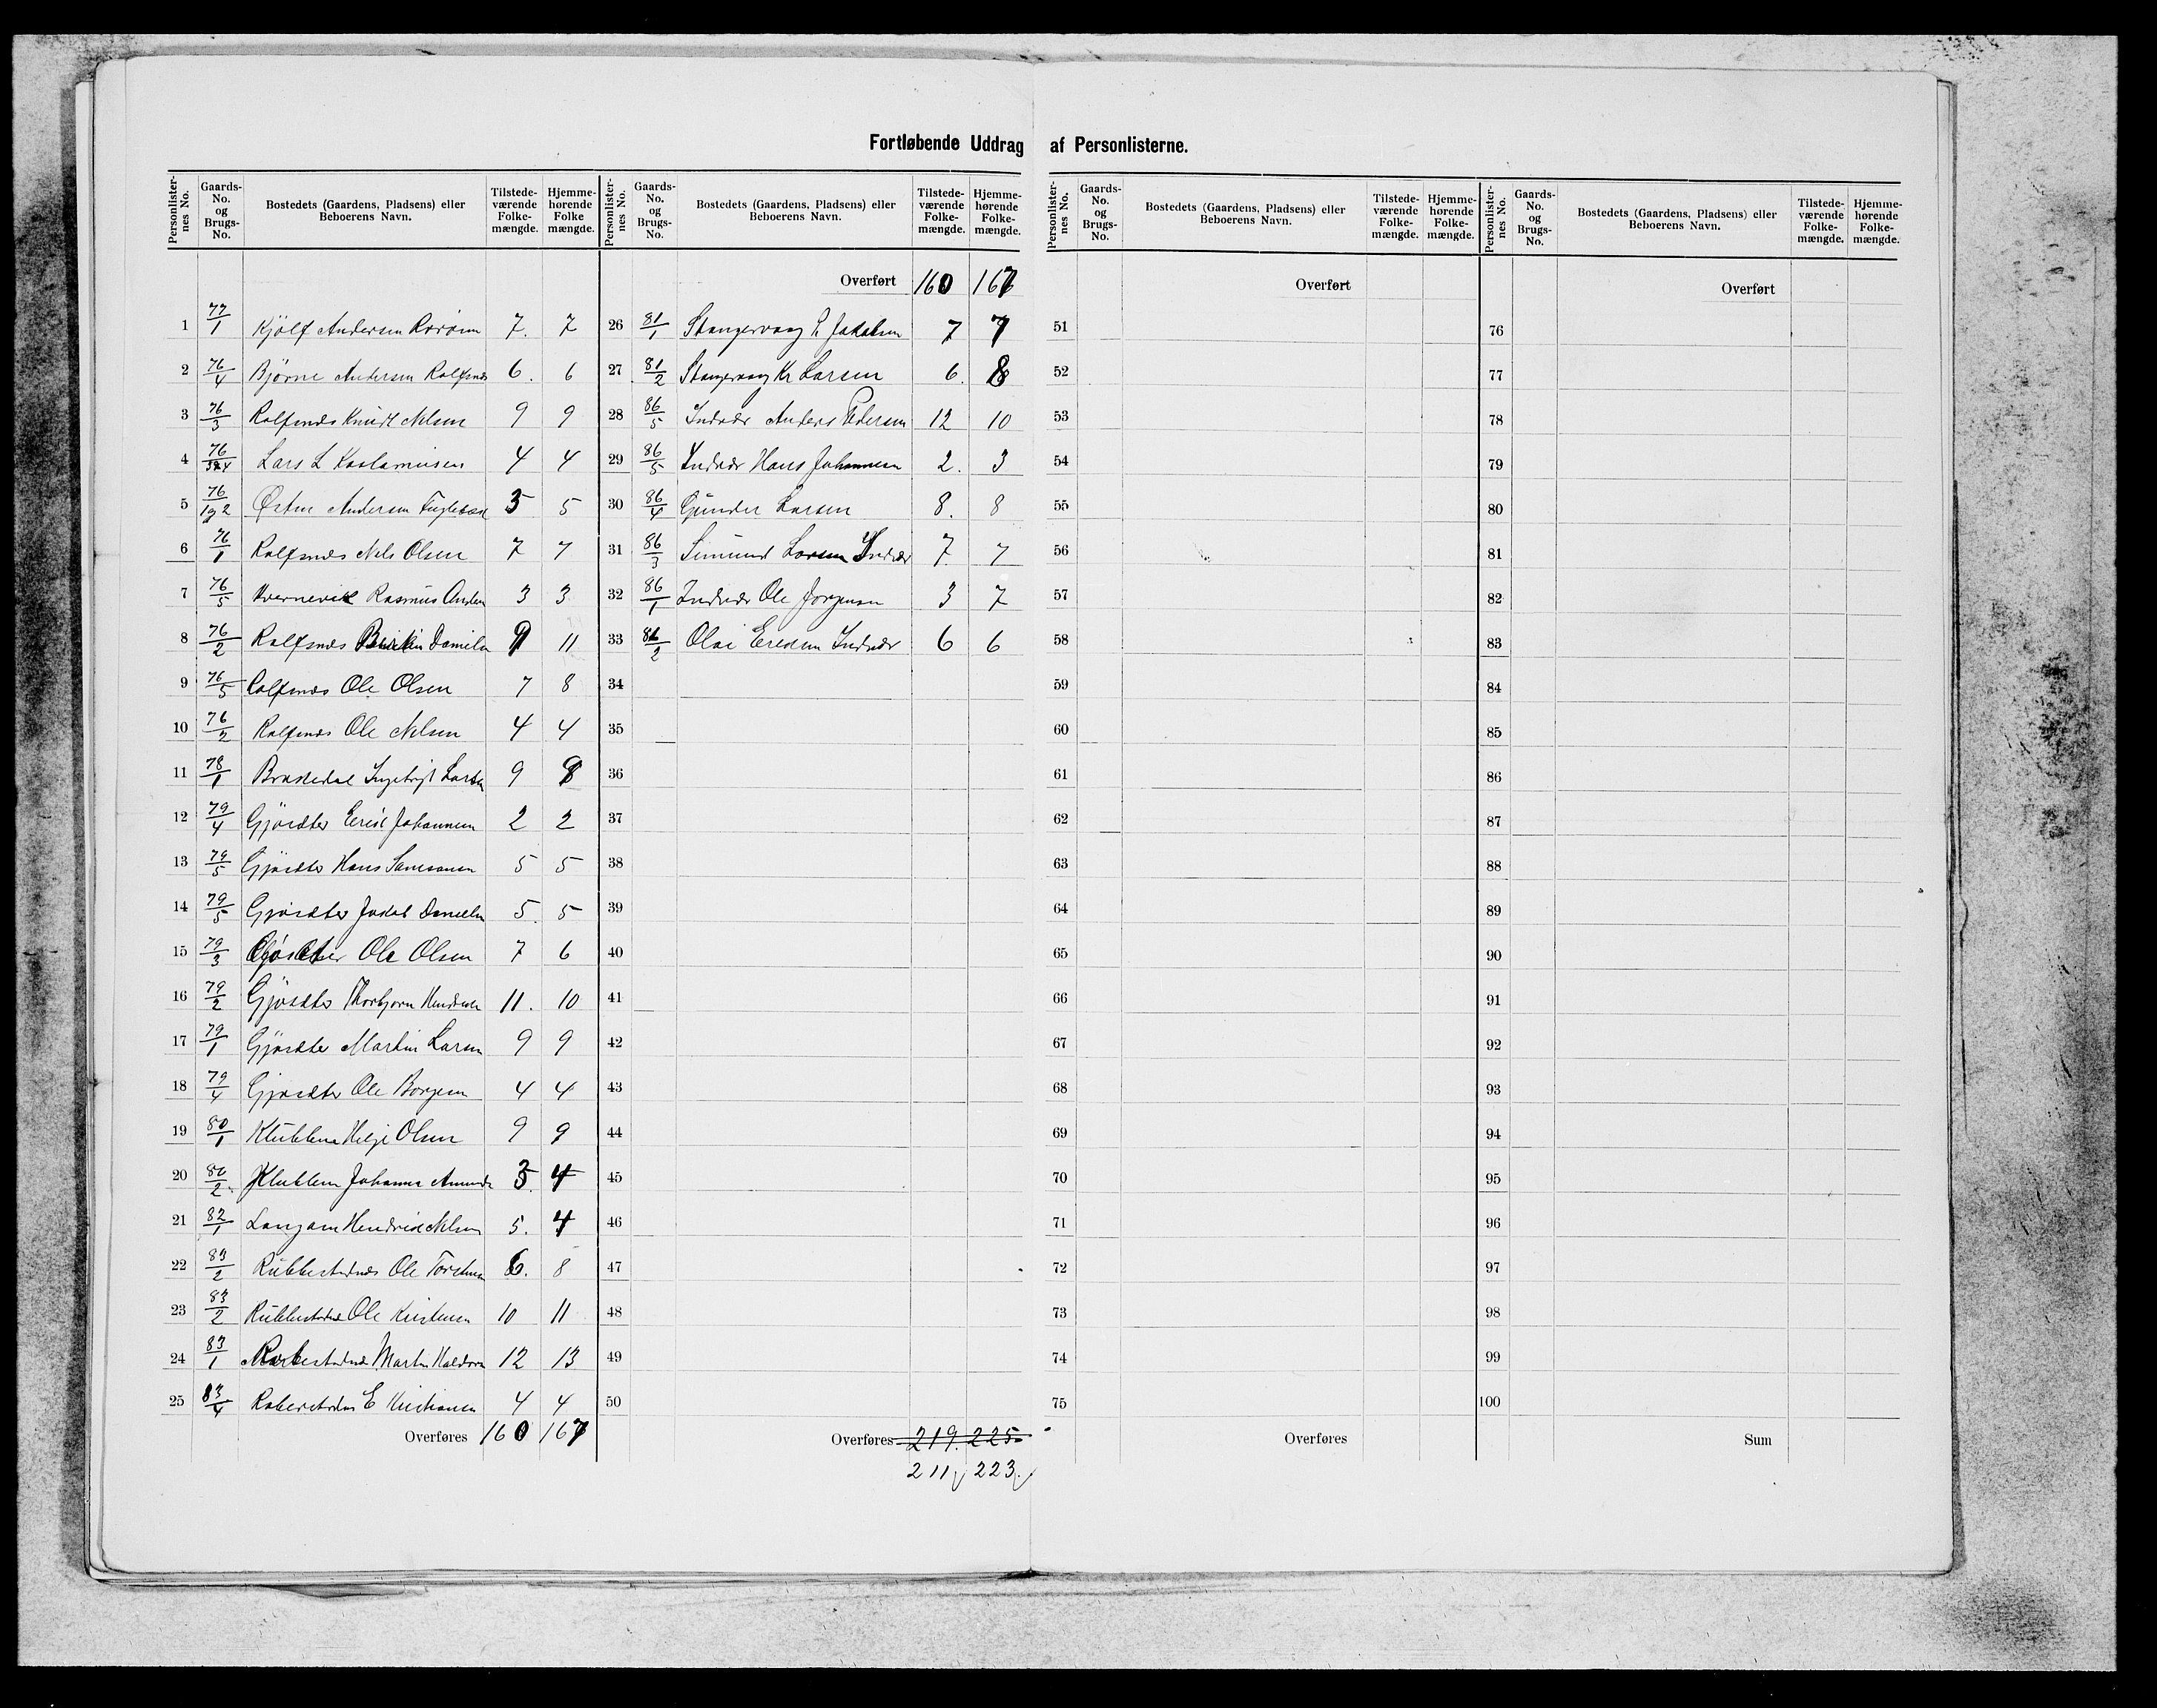 Fortløbende Uddrag af Personlisterne.
Personlister-nes No. Gaards-No. og Brugs-No. Bostedets (Gaardens, Pladsens) eller Beboerens Navn. Tilstede-værende Folke-mængde. Hjemme-hørende Folke mængde.
1 77/1 Kjölf Andersen 7. 7
2 76/4 Bjørne Andersen Rolfsnes 6. 6
3 76/3 Rolfsnes Knudt Nelsen 9 9
4 76 Lars L 4 4
5 76 Østen Andersen 5
6 76/1 Rolfsnes Nels Olsen 7 7
7 76/5 Kvernevik Rasmus Anders 3 3
8 76/2 Rolfsnes Daniels 9 11
9 76/5 Rolfsnes Ole Olsen 7 8
10 76/2 Rolfsnes Ole Nelsen 4 4
11 78/1 Ingebrigt Larsen 9
12 79/4 Gjøsæter Erick Johannesen 2 2
13 79/5 Gjøsæter Hans Samsonsen 5 5
14 79/5 Gjøsæter Jakob Danielsn 5. 5
15 79/3 Gjøsæter Ole Olsen 7 6
16 79/2 Gjøsæter Thorbjørn 11. 10
17 79/1 Gjøsæter Martin Larsen 9 9
18 79/4 Gjøsæter Ole Borgesen 4 4
19 80/1 Klubben Helge Olsen 9 9
20 80/2 Klubben Johannes 4
21 82/1 Hendrick Nelsen 5. 4
22 83/2 Rubbestadnes Ole Torstensen 6. 8
23 83/2 Ole Kristensen 10 11
24 83/1 Martin 12 13
25 83/4 E Kristiansen 4 4
Overføres 160 167
Personlister-nes No. Gaards-No. og Brugs-No. Bostedets (Gaardens, Pladsens) eller Beboerens Navn. Tilstede-værende Folke-mængde. Hjemme-hørende Folke-mængde.
Overført 160 167
26 81/1 Stangervaag L Jakobsen 7 7
27 81/2 Stangervaag Kr Larsen 6. 8
28 86/5 Indvær Anders Pedersen 12 10
29 86/5 Indvær Hans Johannesen 2. 3
30 86/4 Gunder Larsen 8. 8
31 86/3 Simund Larsen Indvær 7. 7
32 86/1 Indvær Ole Jørgensen 3 7
33 86/2 Olai Ericksen Indvær 6 6
34
35
36
37
38
39
40
41
42
43
44
45
46
47
48
49
50
Overføres 219. 225
211 223.
Personlister-nes No. Gaards-No. og Brugs-No. Bostedets (Gaardens, Pladsens) eller Beboerens Navn. Tilstede-værende Folke-mængde. Hjemme-hørende Folke-mængde.
Overført
51
52
53
54
55
56
57
58
59
60
61
62
63
64
65
66
67
68
69
70
71
72
73
74
75
Overføres
Personlister-nes No. Gaards-No. og Brugs-No. Bostedets (Gaardens, Pladsens) eller Beboerens Navn. Tilstede-værende Folke-mængde. Hjemme-hørende Folke-mængde.
Overført
76
77
78
79
80
81
82
83
84
85
86
87
88
89
90
91
92
93
94
95
96
97
98
99
100
Sum